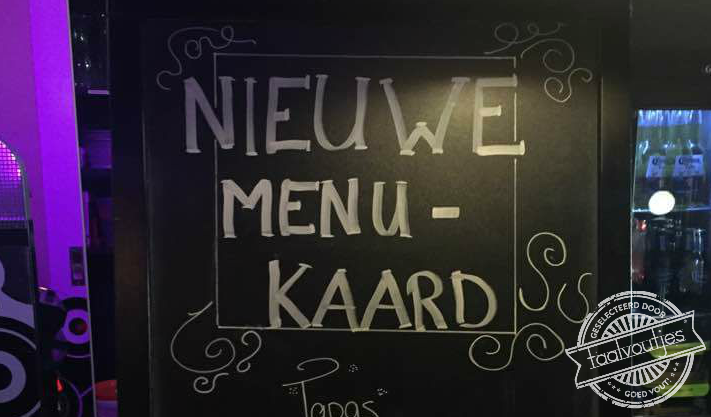 NIEUWE
MENU-
KAARD
Tapas
GESELECTEERD DOOR
taalvoutjes
GOED VOUT!